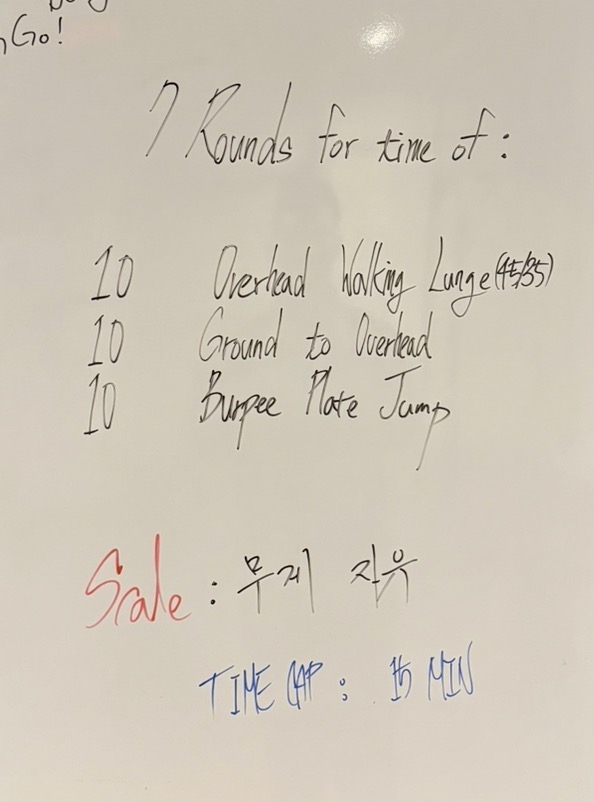 Go!
7 Rounds for time of:
10 Overhead Walking Lunge (45/35)
10 Ground to Overhead
10 Burpee Plate Jump
Scale : 무게 자유
TIME CAP : 15 MIN